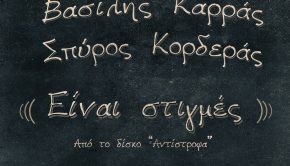 Βασίλης Καρράς
Σπύρος Κορδεράς
(( Είναι στιγμές ))
Από το δίσκο "Αντίστροφα"